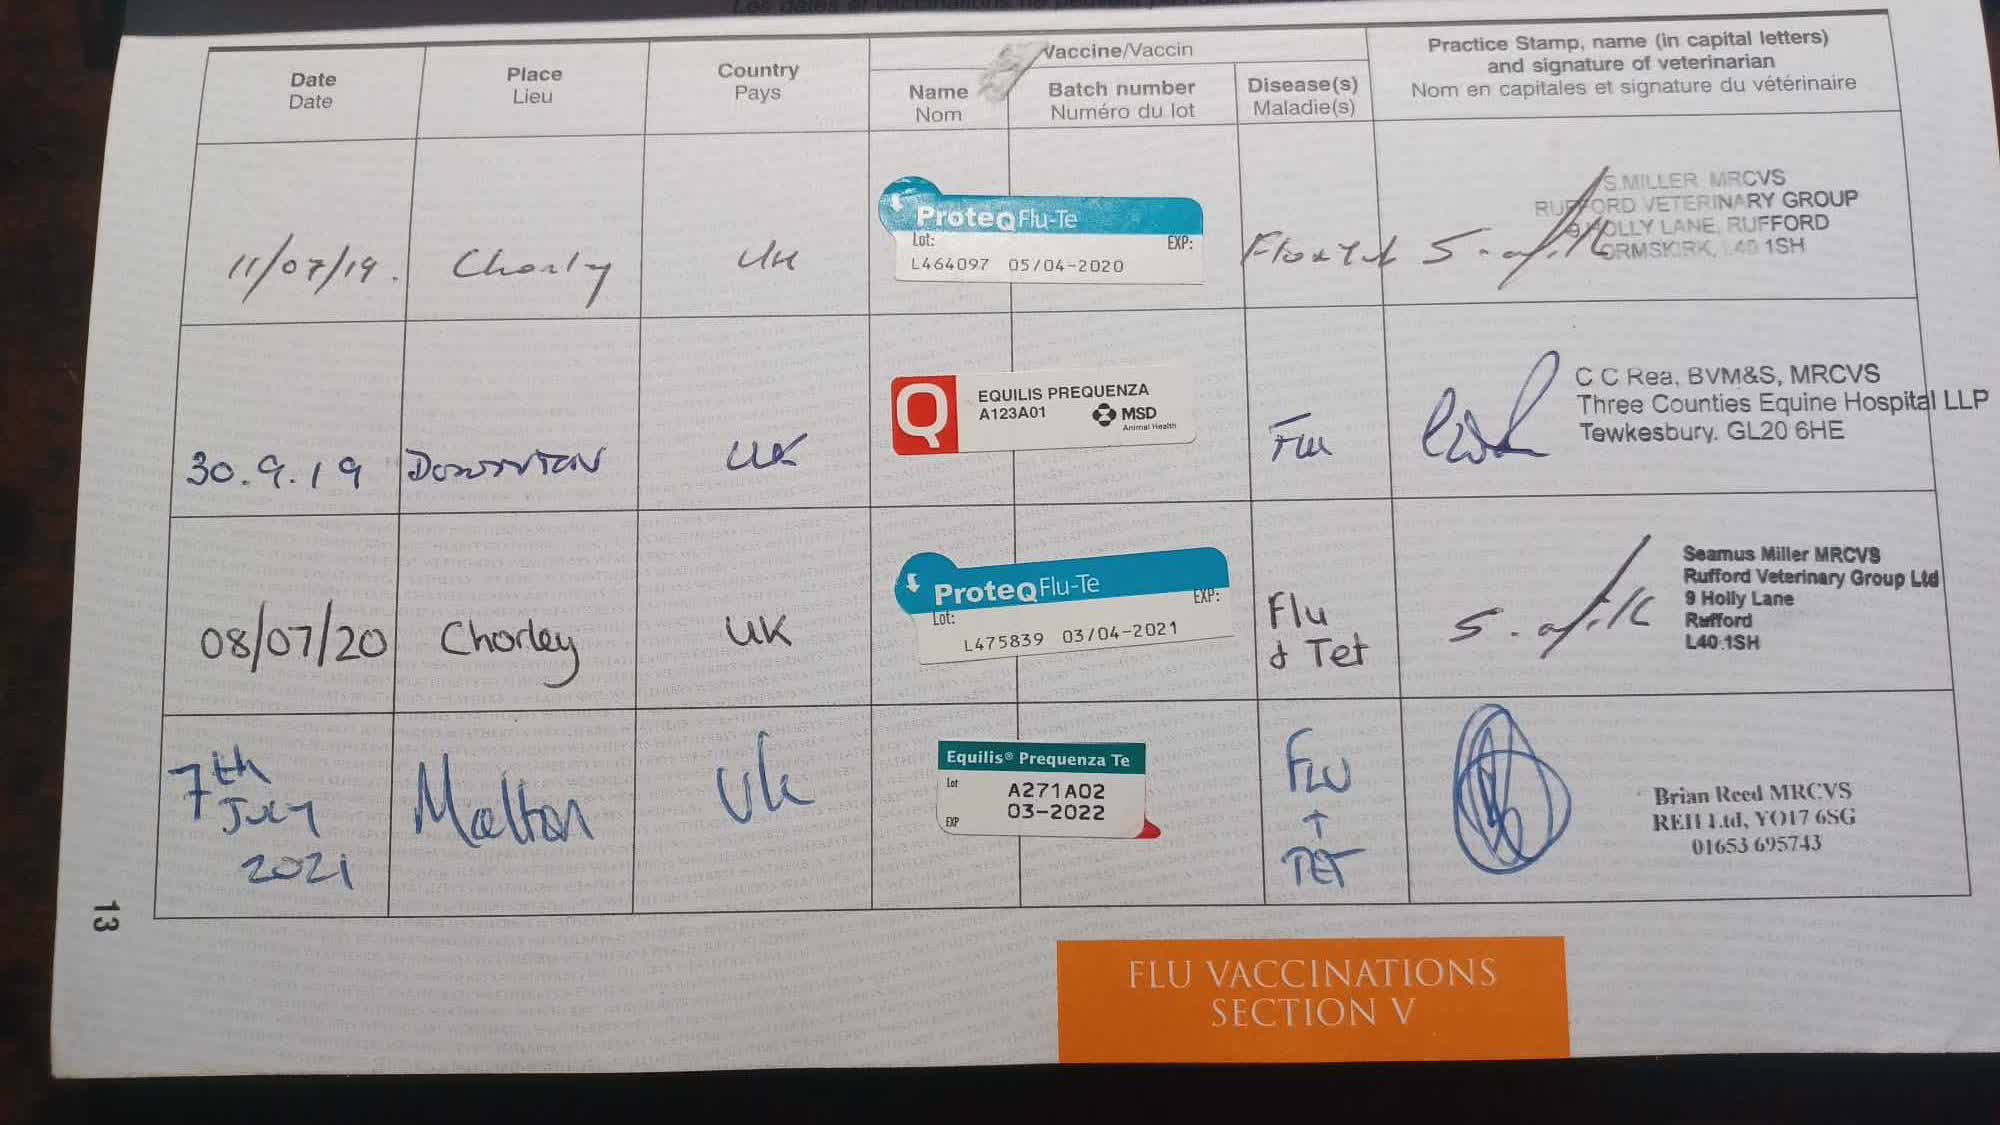 Date
Date
Place
Lieu
Country
Pays
Vaccine/Vaccin
Name
Nom
Batch number
Numéro du lot
Disease(s)
Maladie(s)
Practice Stamp, name (in capital letters)
and signature of veterinarian
Nom en capitales et signature du vétérinaire
11/07/19.
Chorly
UK
ProteqFlu-Te
Lot: EXP:
L464097 05/04-2020
S.MILLER MRCVS
RUFFORD VETERINARY GROUP
9 HOLLY LANE, RUFFORD
ORMSKIRK, L40 1SH
30.9.19
UK
Q
EQUILIS PREQUENZA
A123A01
MSD
Animal Health
Flu
C C Rea, BVM&S, MRCVS
Three Counties Equine Hospital LLP
Tewkesbury. GL20 6HE
08/07/20
Chorley
UK
ProteqFlu-Te
Lot: EXP:
L475839 03/04-2021
Flu
& Tet
Seamus Miller MRCVS
Rufford Veterinary Group Ltd
9 Holly Lane
Rufford
L40 1SH
7th
July
2021
Malton
Uk
Equilis® Prequenza Te
Lot
A271A02
03-2022
EXP
FLU
+
TET
Brian Reed MRCVS
REH Ltd, YO17 6SG
01653 695743
13
FLU VACCINATIONS
SECTION V